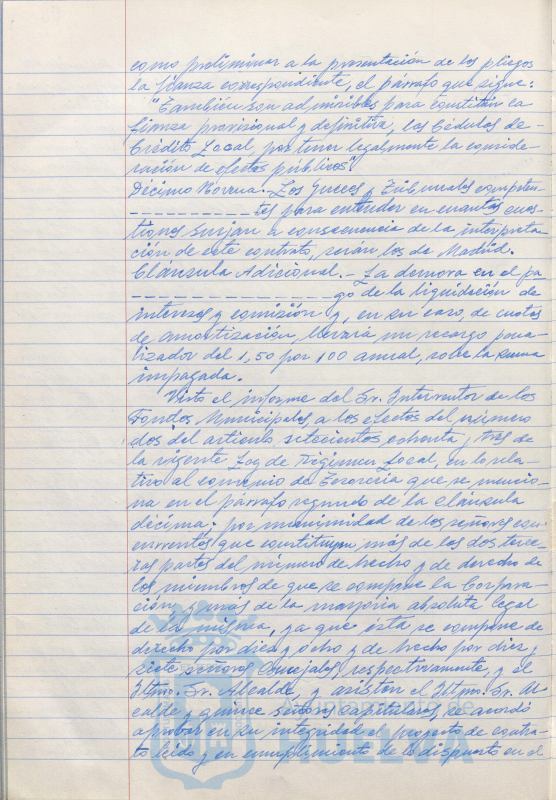 como preliminar a la presentación de los pliegos
la fianza correspondiente, el párrafo que sigue:
"También son admisibles para constituir la
fianza provisional y definitiva, las Cédulas de
Crédito Local, por tener legalmente la conside-
ración de efectos públicos".
Décimo Novena.- Los Jueces y Tribunales competen-
tes para entender en cuantas cues-
tiones surjan a consecuencia de la interpreta-
ción de este contrato, serán los de Madrid.
Cláusula Adicional.- La demora en el pa-
go de la liquidación de
intereses y comisión y, en su caso, de cuotas
de amortización, llevará un recargo pena-
lizador del 1,50 por 100 anual, sobre la suma
impagada.
Visto el informe del Sr. Interventor de los
Fondos Municipales, a los efectos del número
dos del artículo setecientos ochenta y tres de
la vigente Ley de Régimen Local, en lo rela-
tivo al convenio de Tesorería que se mencio-
na en el párrafo segundo de la cláusula
décima; por unanimidad de los señores con-
currentes que constituyen más de las dos terce-
ras partes del número de hecho y de derecho de
los miembros de que se compone la Corpora-
ción, y mas de la mayoría absoluta legal
de la misma, ya que ésta se compone de
derecho por diez y ocho y de hecho por diez y
siete señores Concejales, respectivamente, y el
Iltmo. Sr. Alcalde, y asisten el Iltmo. Sr. Al-
calde y quince señores Capitulares, se acordó
aprobar en su integridad el proyecto de contra-
to leído y en cumplimiento de lo dispuesto en el
Ayuntamiento de
HUELVA